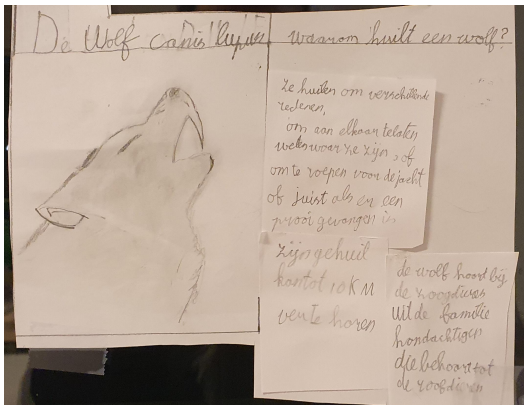 De Wolf canis lupus
waarom huilt een wolf?
ze huilen om verschillende
redenen,
om aan elkaar te laten
weten waar ze zijn, of
om te roepen voor de jacht
of juist als er een
prooi gevangen is
zijn gehuil
kan tot 10 KM
ver te horen
de wolf hoort bij
de zoogdieren
uit de familie
hondachtigen
die behoort tot
de roofdieren